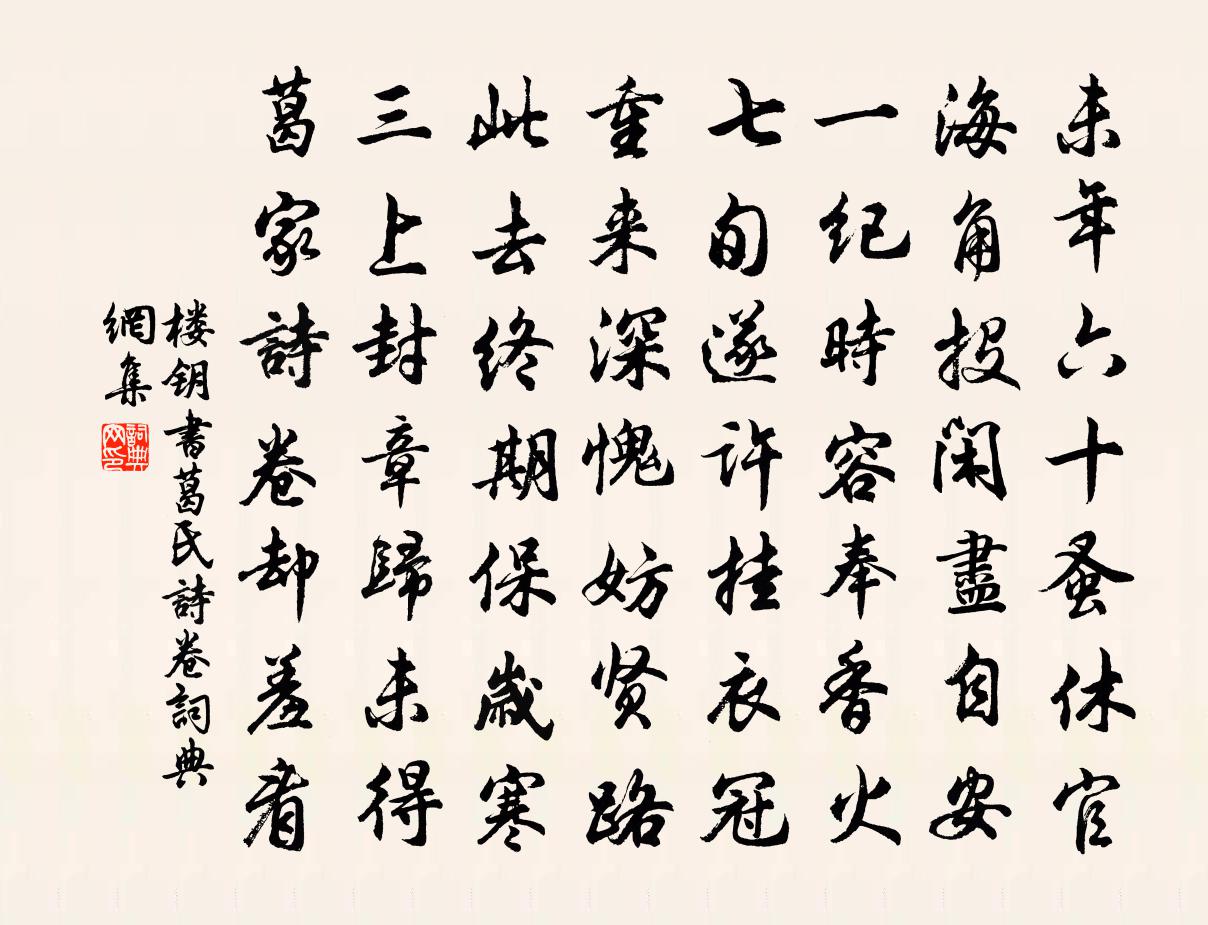 未年六十蚤休官
海角投閑盡自安
一紀時容奉香火
七旬遂许挂衣冠
重来深愧妨贤路
此去终期保歲寒
三上封章歸未得
葛家詩卷却羞看
楼钥書葛氏詩卷詞典
網集
詞典
网印